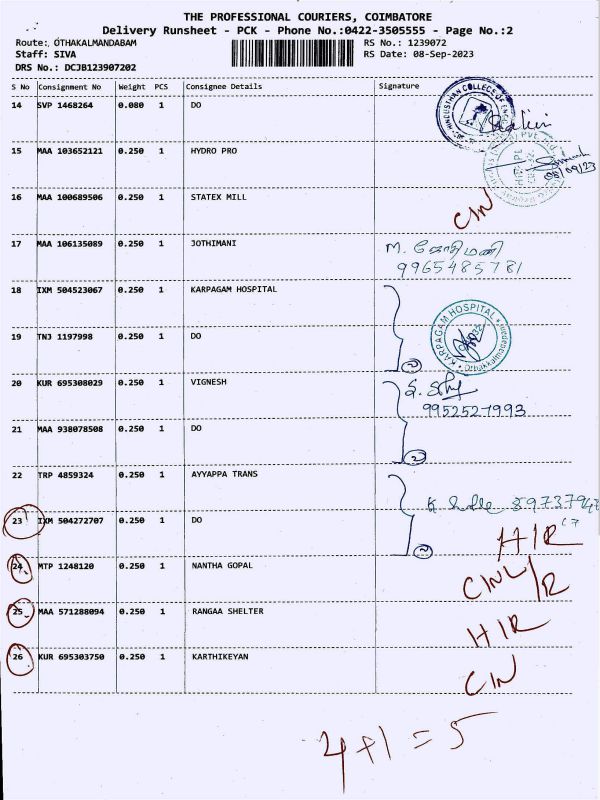 THE PROFESSIONAL COURIERS, COIMBATORE
Delivery Runsheet - PCK - Phone No.:0422-3505555 - Page No.:2
Route: OTHAKALMANDABAM RS No.: 1239072
Staff: SIVA RS Date: 08-Sep-2023
DRS No.: DCJB123907202
S No Consignment No Weight PCS Consignee Details Signature
14 SVP 1468264 0.080 1 DO
HINDUSTHAN COLLEGE OF
15 MAA 103652121 0.250 1 HYDRO PRO
08/09/23
16 MAA 100689506 0.250 1 STATEX MILL CIN
17 MAA 106135089 0.250 1 JOTHIMANI M. ஜோதிமணி
9965485781
18 IXM 504523067 0.250 1 KARPAGAM HOSPITAL
KARPAGAM HOSPITAL
19 TNJ 1197998 0.250 1 DO 2
20 KUR 695308029 0.250 1 VIGNESH
9952527993
21 MAA 938078508 0.250 1 DO 2
22 TRP 4859324 0.250 1 AYYAPPA TRANS
23 IXM 504272707 0.250 1 DO 2 HIR
24 MTP 1248120 0.250 1 NANTHA GOPAL CINL/R
25 MAA 571288094 0.250 1 RANGAA SHELTER HIR
26 KUR 695303750 0.250 1 KARTHIKEYAN CIN
4+1=5